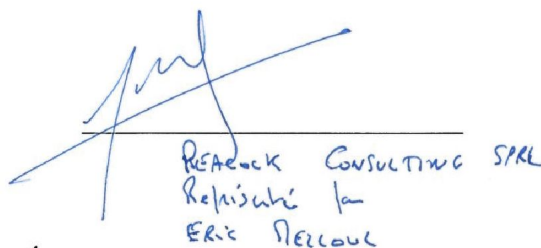 PEACOCK CONSULTING SPRL
Représenté par
ERIC MELLOUL